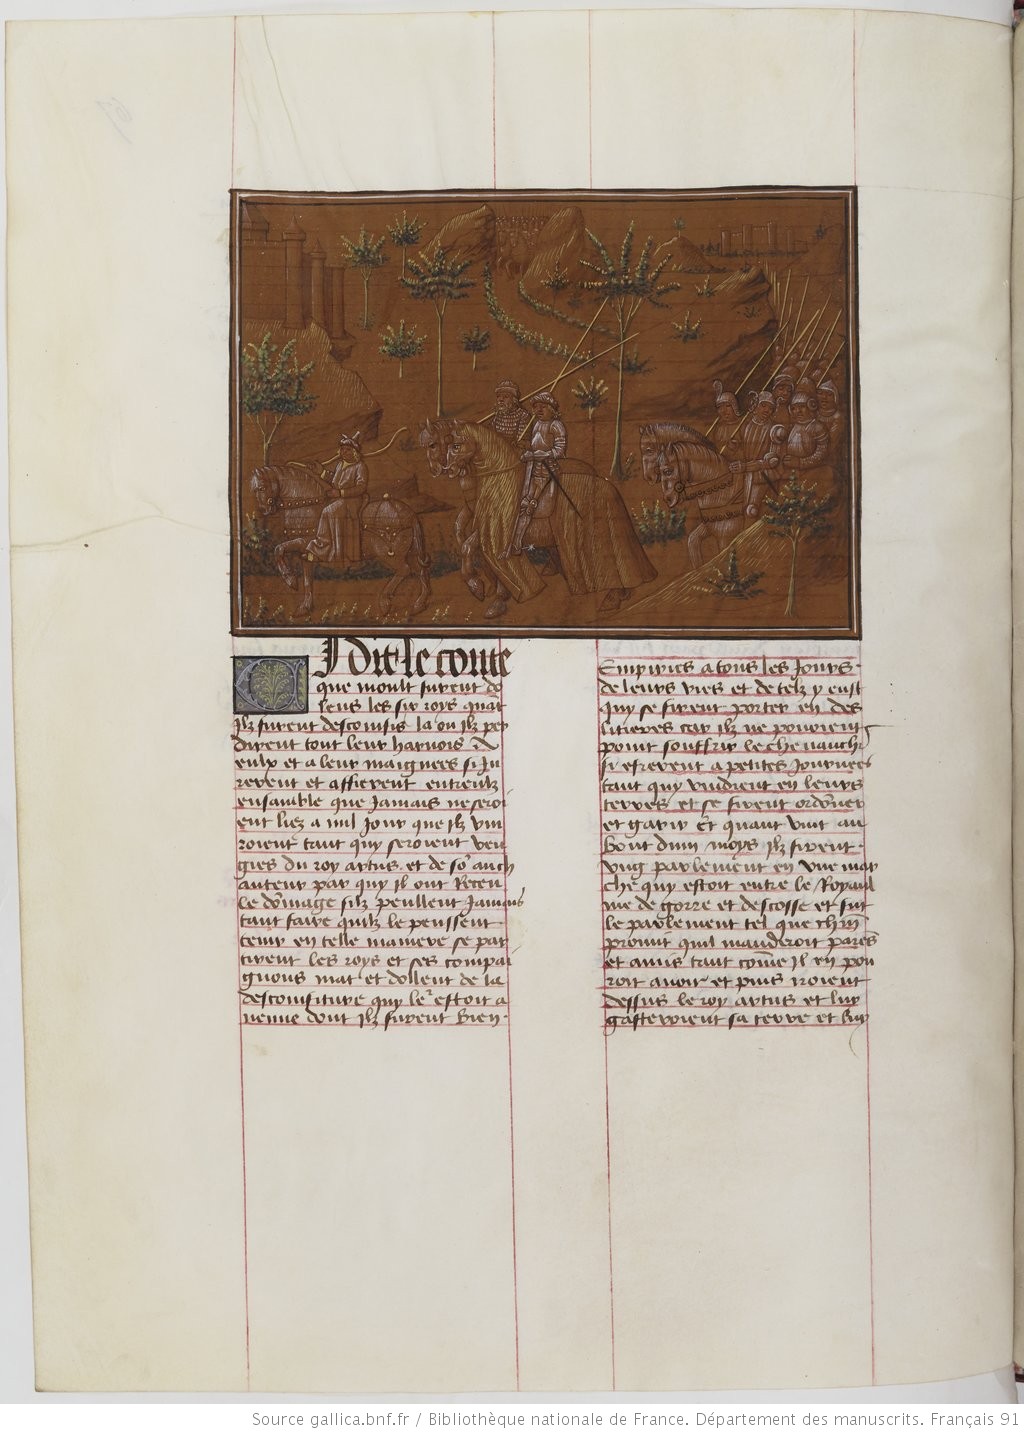 CI dit le conte
que moult furent do
lens les six roys quāt
Ilz furent desconfis la ou ilz per
dirent tout leur harnois A
eulx et a leur maignees si Ju
rerent et affierent entreulx
ensamble que Jamais ne seroi
ent liez a nul Jour que ilz viu
roient tant quy seroient ven
gies du roy artus et de sō anch
anteur par quy il ont Receu
le dōmage silz peullent Jamais
tant faire quilz le peussent
tenir en telle maniere se par
tirent les roys et ses compai
gnons mat et dollent de la
desconfiture quy leʳ estoit a
venue dont ilz furent bien
Empiries a tous les Jours
de leurs vies et de telz y eust
quy se firent porter en des
litieres car ilz ne pouoient
point souffrir le cheuauchʳ
si errerent a petites Journees
tant quy vindrent en leurs
terres et se firent ordōner
et garir Et quant vint au
bout dun moys ilz firent
vng parlement en vne mar
che quy estoit entre le Royaul
me de gorre et descosse et fut
le parlement tel que chūn
promist quil manderoit parēs
et amis tant cōme il en pou
roit auoir et puis iroient
dessus le roy artus et luy
gasteroient sa terre et luy
Source gallica.bnf.fr / Bibliothèque nationale de France. Département des manuscrits. Français 91